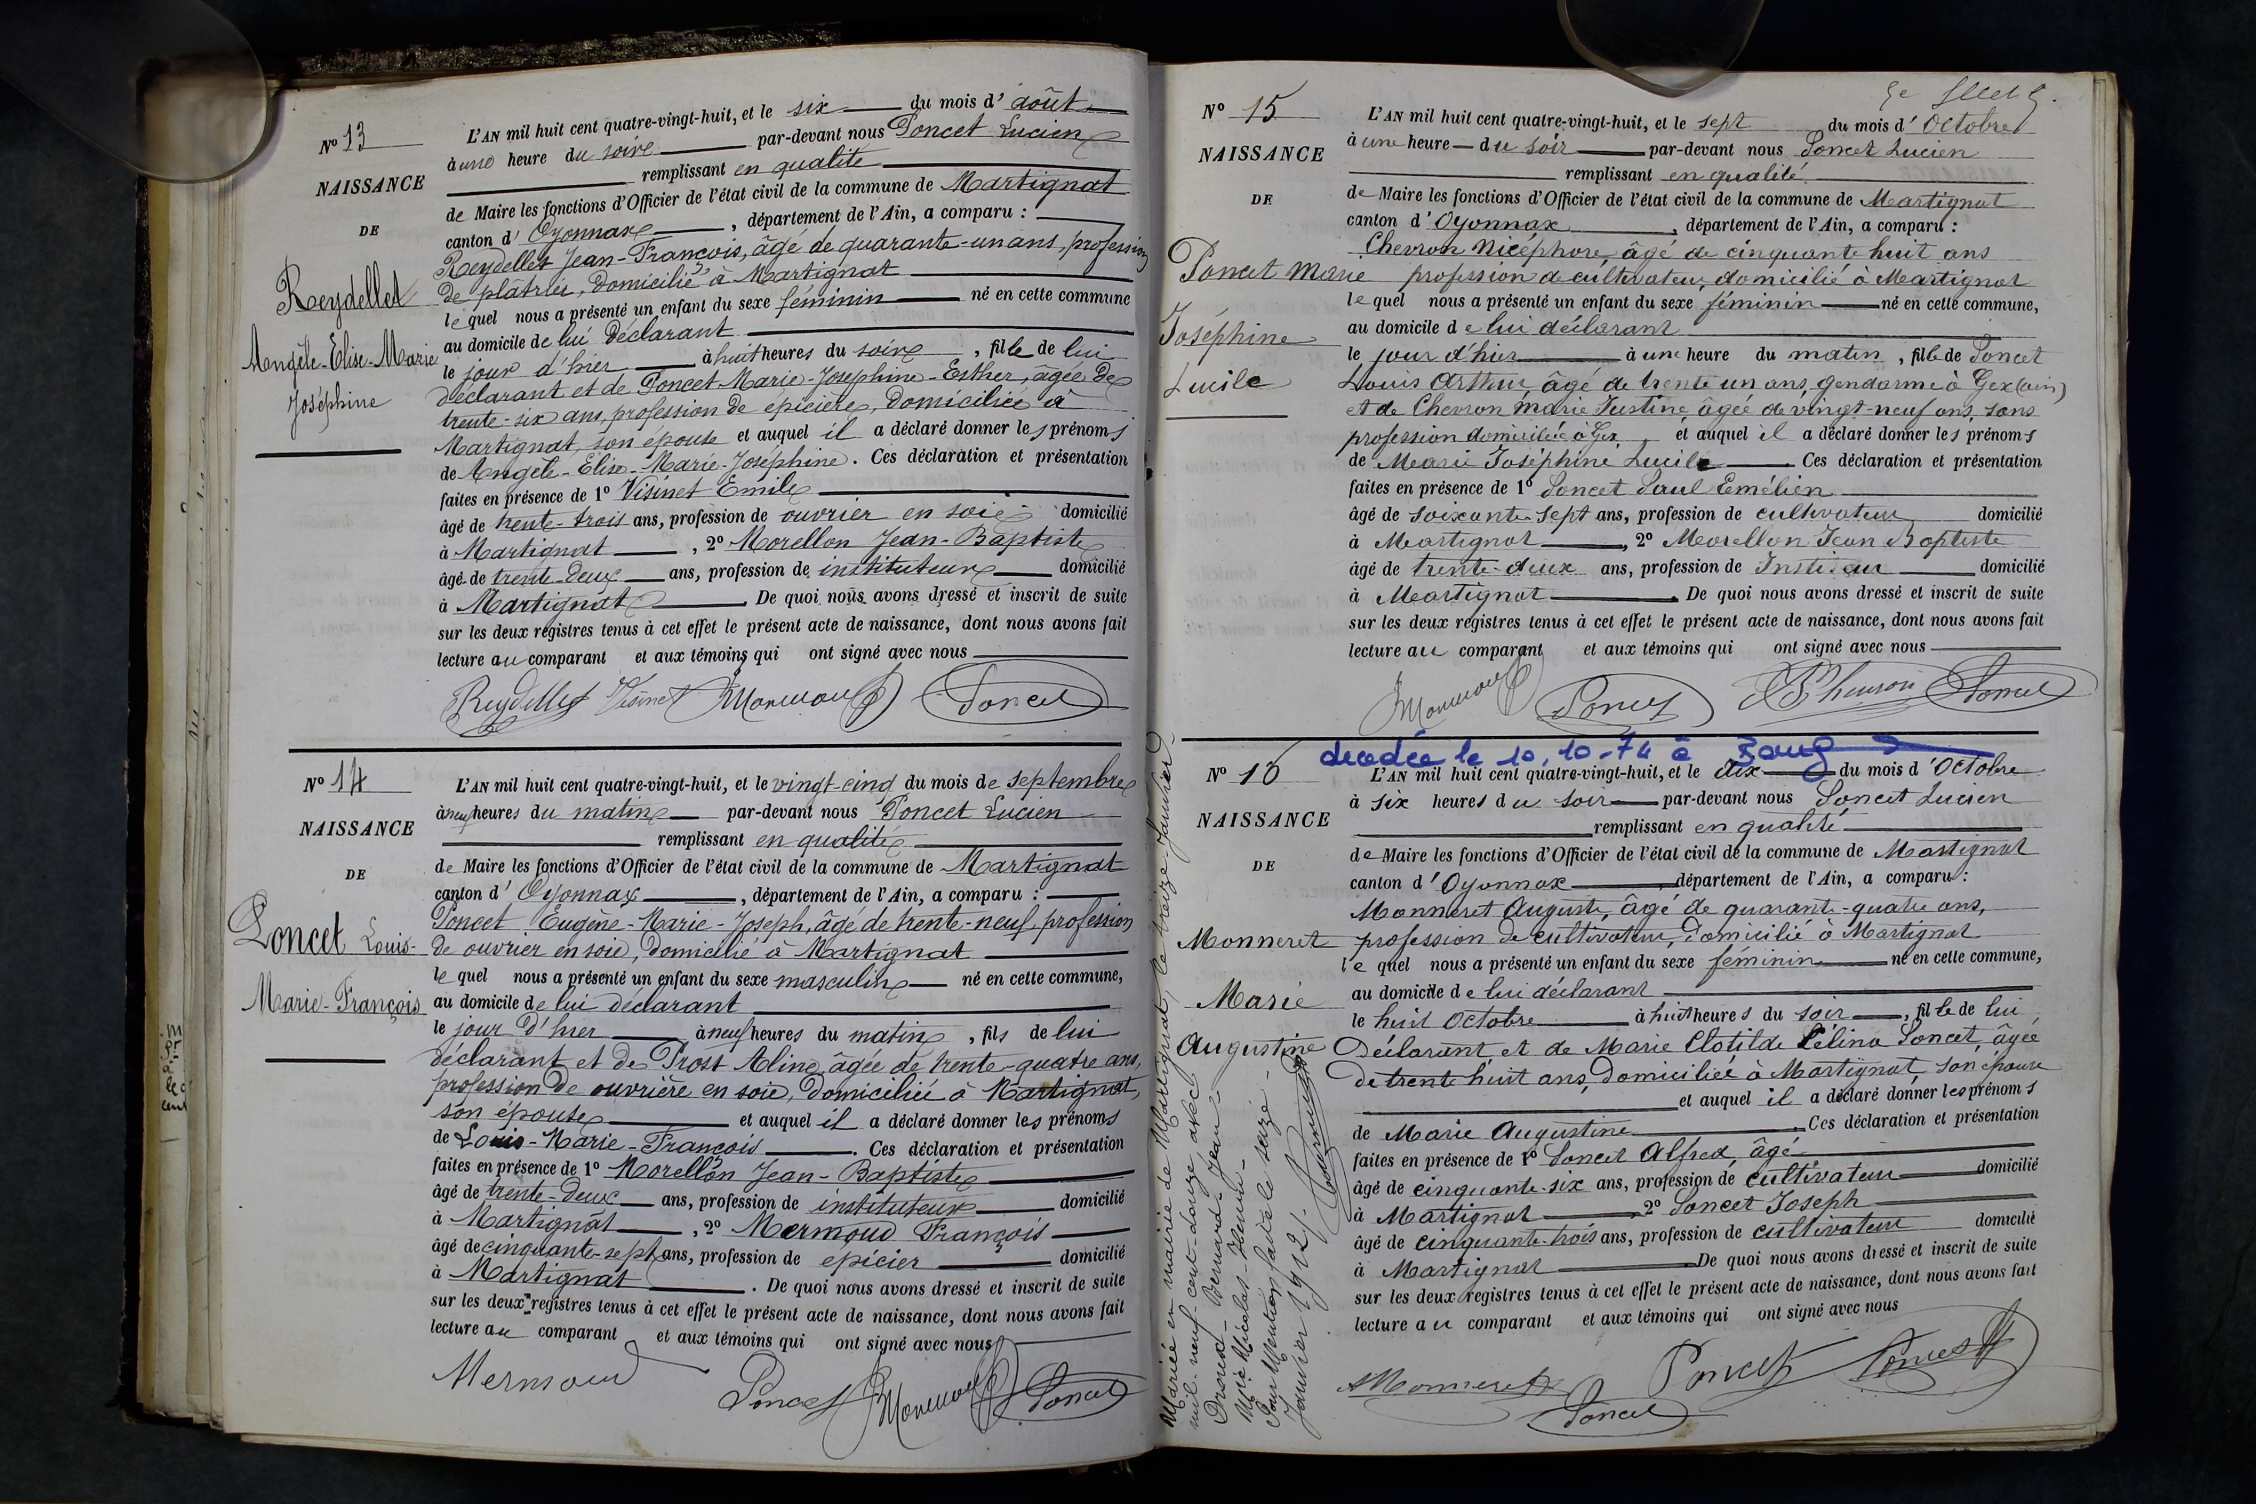 N° 13
NAISSANCE
DE
Reydellet
Angèle-Elise-Marie
Joséphine
L'AN mil huit cent quatre-vingt-huit, et le six du mois d'août
à une heure du soir par-devant nous Poncet Lucien
remplissant en qualité
de Maire les fonctions d'Officier de l'état civil de la commune de Martignat
canton d'Oyonnax, département de l'Ain, a comparu :
Reydellet Jean-François, âgé de quarante-un ans, profession
de plâtrier, domicilié à Martignat
lequel nous a présenté un enfant du sexe féminin né en cette commune
au domicile de lui déclarant
le jour d'hier à huit heures du soir, fille de lui
déclarant et de Poncet Marie-Josephine-Esther, âgée de
trente-six ans, profession de épicière, domiciliée à
Martignat, son épouse et auquel il a déclaré donner les prénoms
de Angèle-Elise-Marie-Joséphine. Ces déclaration et présentation
faites en présence de 1° Visinet Emile
âgé de trente-trois ans, profession de ouvrier en soie domicilié
à Martignat, 2° Morellon Jean-Baptiste
âgé de trente-deux ans, profession de instituteur domicilié
à Martignat. De quoi nous avons dressé et inscrit de suite
sur les deux registres tenus à cet effet le présent acte de naissance, dont nous avons fait
lecture au comparant et aux témoins qui ont signé avec nous
Reydellet Visinet Poncet
N° 14
NAISSANCE
DE
Poncet Louis-
Marie-François
L'AN mil huit cent quatre-vingt-huit, et le vingt-cinq du mois de septembre
à neuf heures du matin par-devant nous Poncet Lucien
remplissant en qualité
de Maire les fonctions d'Officier de l'état civil de la commune de Martignat
canton d'Oyonnax, département de l'Ain, a comparu :
Poncet Eugène-Marie-Joseph, âgé de trente-neuf, profession
de ouvrier en soie, domicilié à Martignat
lequel nous a présenté un enfant du sexe masculin né en cette commune,
au domicile de lui déclarant
le jour d'hier à neuf heures du matin, fils de lui
déclarant et de Prost Aline, âgée de trente-quatre ans,
profession de ouvrière en soie, domiciliée à Martignat,
son épouse et auquel il a déclaré donner les prénoms
de Louis-Marie-François. Ces déclaration et présentation
faites en présence de 1° Morellon Jean-Baptiste
âgé de trente-deux ans, profession de instituteur domicilié
à Martignat, 2° Mermoud François
âgé de cinquante-sept ans, profession de épicier domicilié
à Martignat. De quoi nous avons dressé et inscrit de suite
sur les deux registres tenus à cet effet le présent acte de naissance, dont nous avons fait
lecture au comparant et aux témoins qui ont signé avec nous
Mermoud Poncet Poncet
N° 15
NAISSANCE
DE
Poncet Marie
Joséphine
Lucile
L'AN mil huit cent quatre-vingt-huit, et le sept du mois d'Octobre
à une heure du soir par-devant nous Poncet Lucien
remplissant en qualité
de Maire les fonctions d'Officier de l'état civil de la commune de Martignat
canton d'Oyonnax, département de l'Ain, a comparu :
Chevron Nicéphore, âgé de cinquante huit ans
profession de cultivateur, domicilié à Martignat
lequel nous a présenté un enfant du sexe féminin né en cette commune,
au domicile de lui déclarant
le jour d'hier à une heure du matin, fille de Poncet
Louis Arthur, âgé de trente un ans, gendarme à Gex (ain)
et de Chevron Marie Justine, âgée de vingt-neuf ans, sans
profession domiciliée à Gex, et auquel il a déclaré donner les prénoms
de Marie Joséphine Lucile. Ces déclaration et présentation
faites en présence de 1° Poncet Paul Emélien
âgé de soixante sept ans, profession de cultivateur domicilié
à Martignat, 2° Morellon Jean Baptiste
âgé de trente-deux ans, profession de Instituteur domicilié
à Martignat. De quoi nous avons dressé et inscrit de suite
sur les deux registres tenus à cet effet le présent acte de naissance, dont nous avons fait
lecture au comparant et aux témoins qui ont signé avec nous
Poncet Poncet
decedée le 10.10-74 à Bourg
N° 16
NAISSANCE
DE
Monneret
Marie
Augustine
L'AN mil huit cent quatre-vingt-huit, et le dix du mois d'Octobre
à six heures du soir par-devant nous Poncet Lucien
remplissant en qualité
de Maire les fonctions d'Officier de l'état civil de la commune de Martignat
canton d'Oyonnax, département de l'Ain, a comparu :
Monneret Auguste, âgé de quarante-quatre ans,
profession de cultivateur, domicilié à Martignat
lequel nous a présenté un enfant du sexe féminin né en cette commune,
au domicile de lui déclarant
le huit Octobre à huit heures du soir, fille de lui,
Déclarant et de Marie Clotilde Célina Poncet, âgée
de trente huit ans, domiciliée à Martignat, son épouse
et auquel il a déclaré donner les prénoms
de Marie Augustine. Ces déclaration et présentation
faites en présence de 1° Poncet Alfred, âgé
âgé de cinquante-six ans, profession de cultivateur domicilié
à Martignat, 2° Poncet Joseph
âgé de cinquante-trois ans, profession de cultivateur domicilié
à Martignat. De quoi nous avons dressé et inscrit de suite
sur les deux registres tenus à cet effet le présent acte de naissance, dont nous avons fait
lecture au comparant et aux témoins qui ont signé avec nous
AMonneret Poncet Poncet
Poncet
Mariée en mairie de Martignat, le treize Janvier
mil-neuf-cent-douze avec
Bernard-Jean-
Marie Nicolas-Henri-
Pour Mention faite le seize
Janvier 1912.